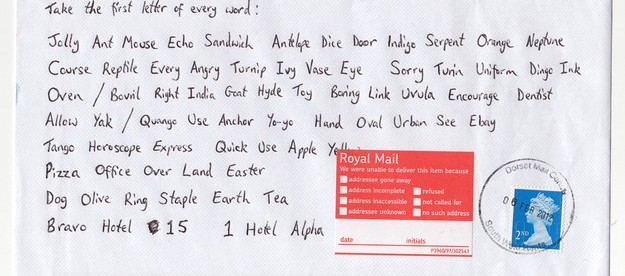 Take the first letter of every word:
Jolly Ant Mouse Echo Sandwich Antelope Dice Door Indigo Serpent Orange Neptune
Course Reptile Every Angry Turnip Ivy Vase Eye Sorry Turin Uniform Dingo Ink
Oven / Bovril Right India Goat Hyde Toy Boring Link Uvula Encourage Dentist
Allow Yak / Quango Use Anchor Yo-yo Hand Oval Urban See Ebay
Tango Horoscope Express Quick Use Apple
Pizza Office Over Land Easter
Dog Olive Ring Staple Earth Tea
Bravo Hotel 15 1 Hotel Alpha
Royal Mail
We were unable to deliver this item because
addressee gone away
address incomplete refused
address inaccessible not called for
addressee unknown no such address
date initials
P3960/97/302543
Dorset Mail
06 FEB 2015
2ND